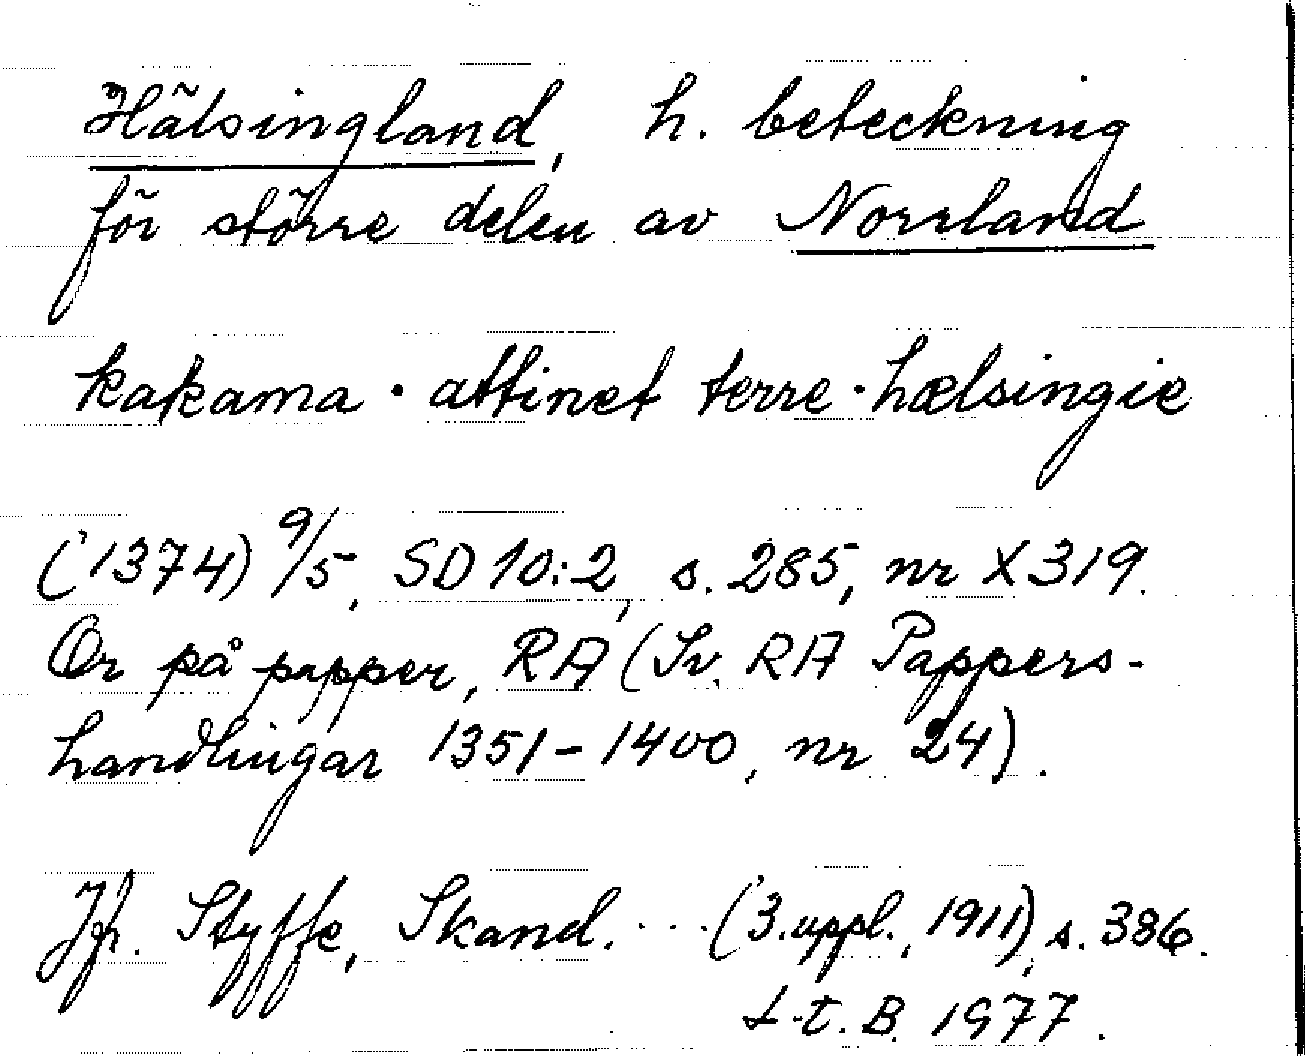 Hälsingland, h. beteckning
för större delen av Norrland
kakama · attinet terre · hælsingie
(1374) 9/5, SD 10:2, s. 285, nr X319.
Or på papper, RA (Sv. RA Pappers-
handlingar 1351-1400, nr 24).
Jfr. Styffe, Skand. ... (3. uppl., 1911), s. 386.
L-t. B. 1977.